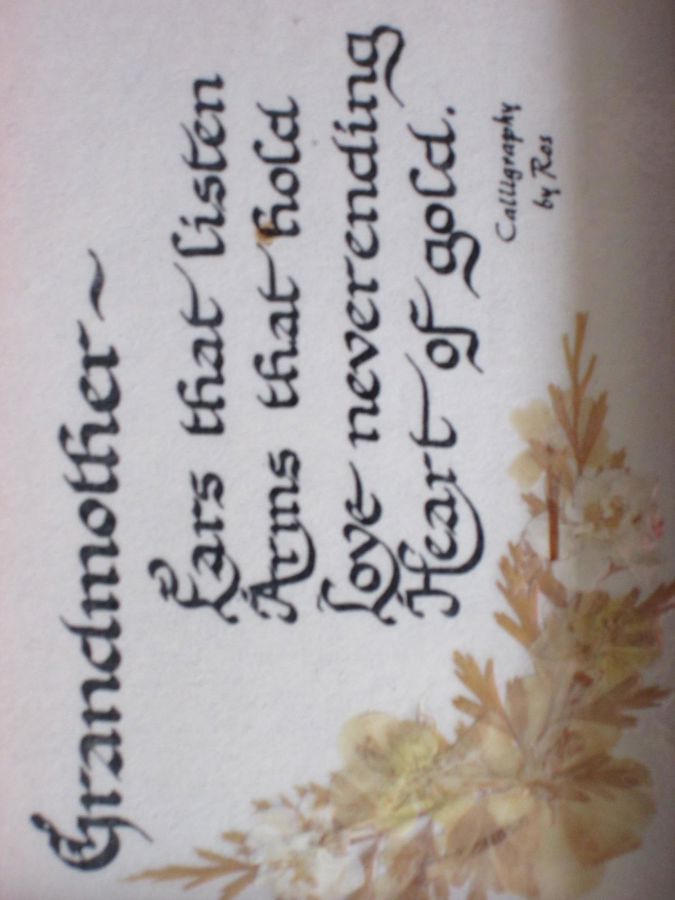 Grandmother ~
Ears that listen
Arms that hold
Love neverending
Heart of gold.
Calligraphy
by Ros